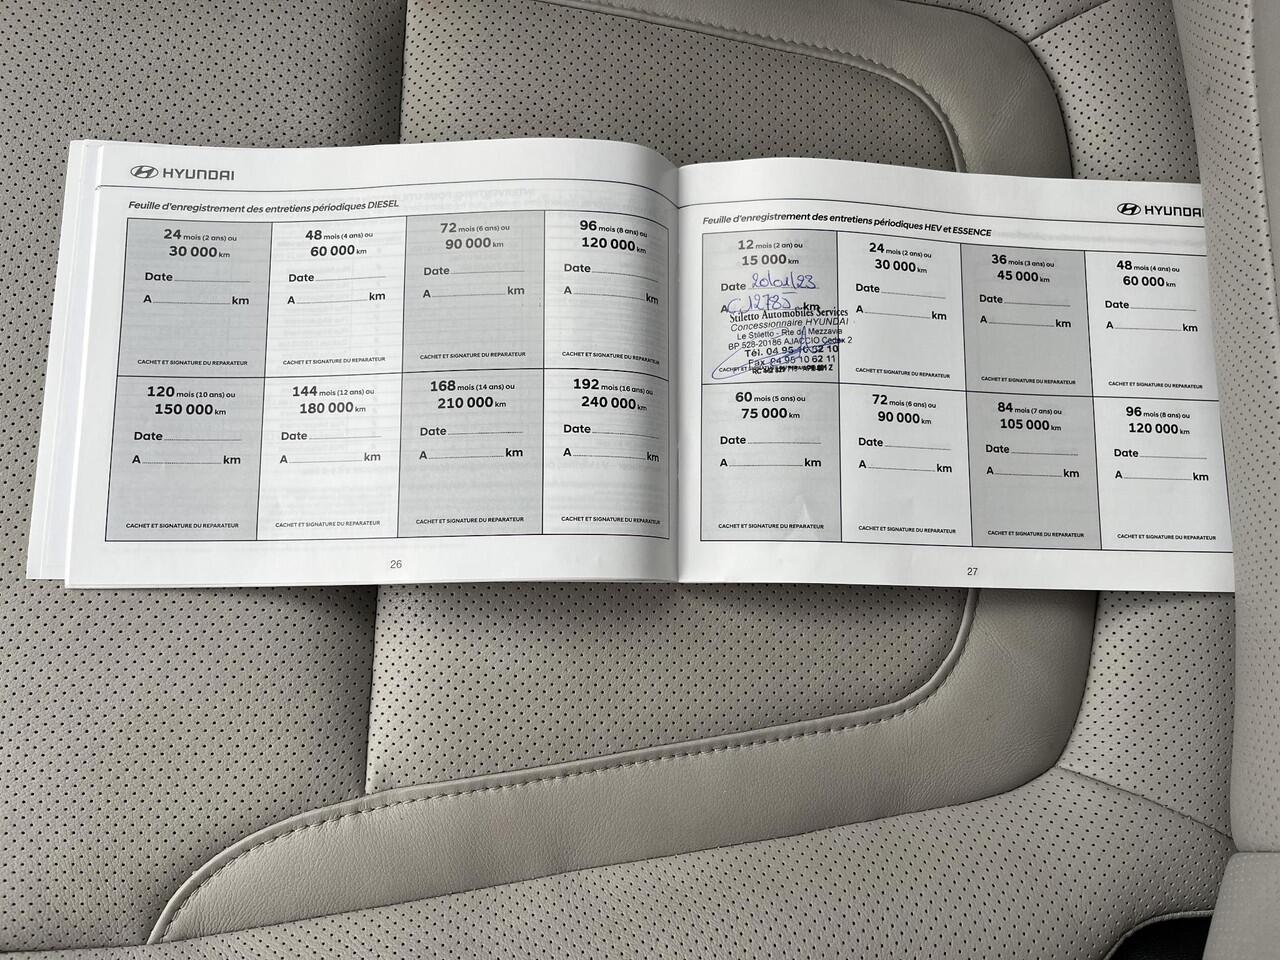 HYUNDAI
Feuille d'enregistrement des entretiens périodiques DIESEL
24 mois (2 ans) ou
30 000 km
Date
A km
CACHET ET SIGNATURE DU REPARATEUR
48 mois (4 ans) ou
60 000 km
Date
A km
CACHET ET SIGNATURE DU REPARATEUR
72 mois (6 ans) ou
90 000 km
Date
A km
CACHET ET SIGNATURE DU REPARATEUR
96 mois (8 ans) ou
120 000 km
Date
A km
CACHET ET SIGNATURE DU REPARATEUR
120 mois (10 ans) ou
150 000 km
Date
A km
CACHET ET SIGNATURE DU REPARATEUR
144 mois (12 ans) ou
180 000 km
Date
A km
CACHET ET SIGNATURE DU REPARATEUR
168 mois (14 ans) ou
210 000 km
Date
A km
CACHET ET SIGNATURE DU REPARATEUR
192 mois (16 ans) ou
240 000 km
Date
A km
CACHET ET SIGNATURE DU REPARATEUR
26
HYUNDAI
Feuille d'enregistrement des entretiens périodiques HEV et ESSENCE
12 mois (2 an) ou
15 000 km
Date 20/01/23
A km
Stiletto Automobiles Services
Concessionnaire HYUNDAI
Le Stiletto - Rte de Mezzavia
BP 528-20186 AJACCIO Cedex 2
Tél. 04 95 10 52 10
Fax 04 95 10 62 11
24 mois (2 ans) ou
30 000 km
Date
A km
CACHET ET SIGNATURE DU REPARATEUR
36 mois (3 ans) ou
45 000 km
Date
A km
CACHET ET SIGNATURE DU REPARATEUR
48 mois (4 ans) ou
60 000 km
Date
A km
CACHET ET SIGNATURE DU REPARATEUR
60 mois (5 ans) ou
75 000 km
Date
A km
CACHET ET SIGNATURE DU REPARATEUR
72 mois (6 ans) ou
90 000 km
Date
A km
CACHET ET SIGNATURE DU REPARATEUR
84 mois (7 ans) ou
105 000 km
Date
A km
CACHET ET SIGNATURE DU REPARATEUR
96 mois (8 ans) ou
120 000 km
Date
A km
CACHET ET SIGNATURE DU REPARATEUR
27